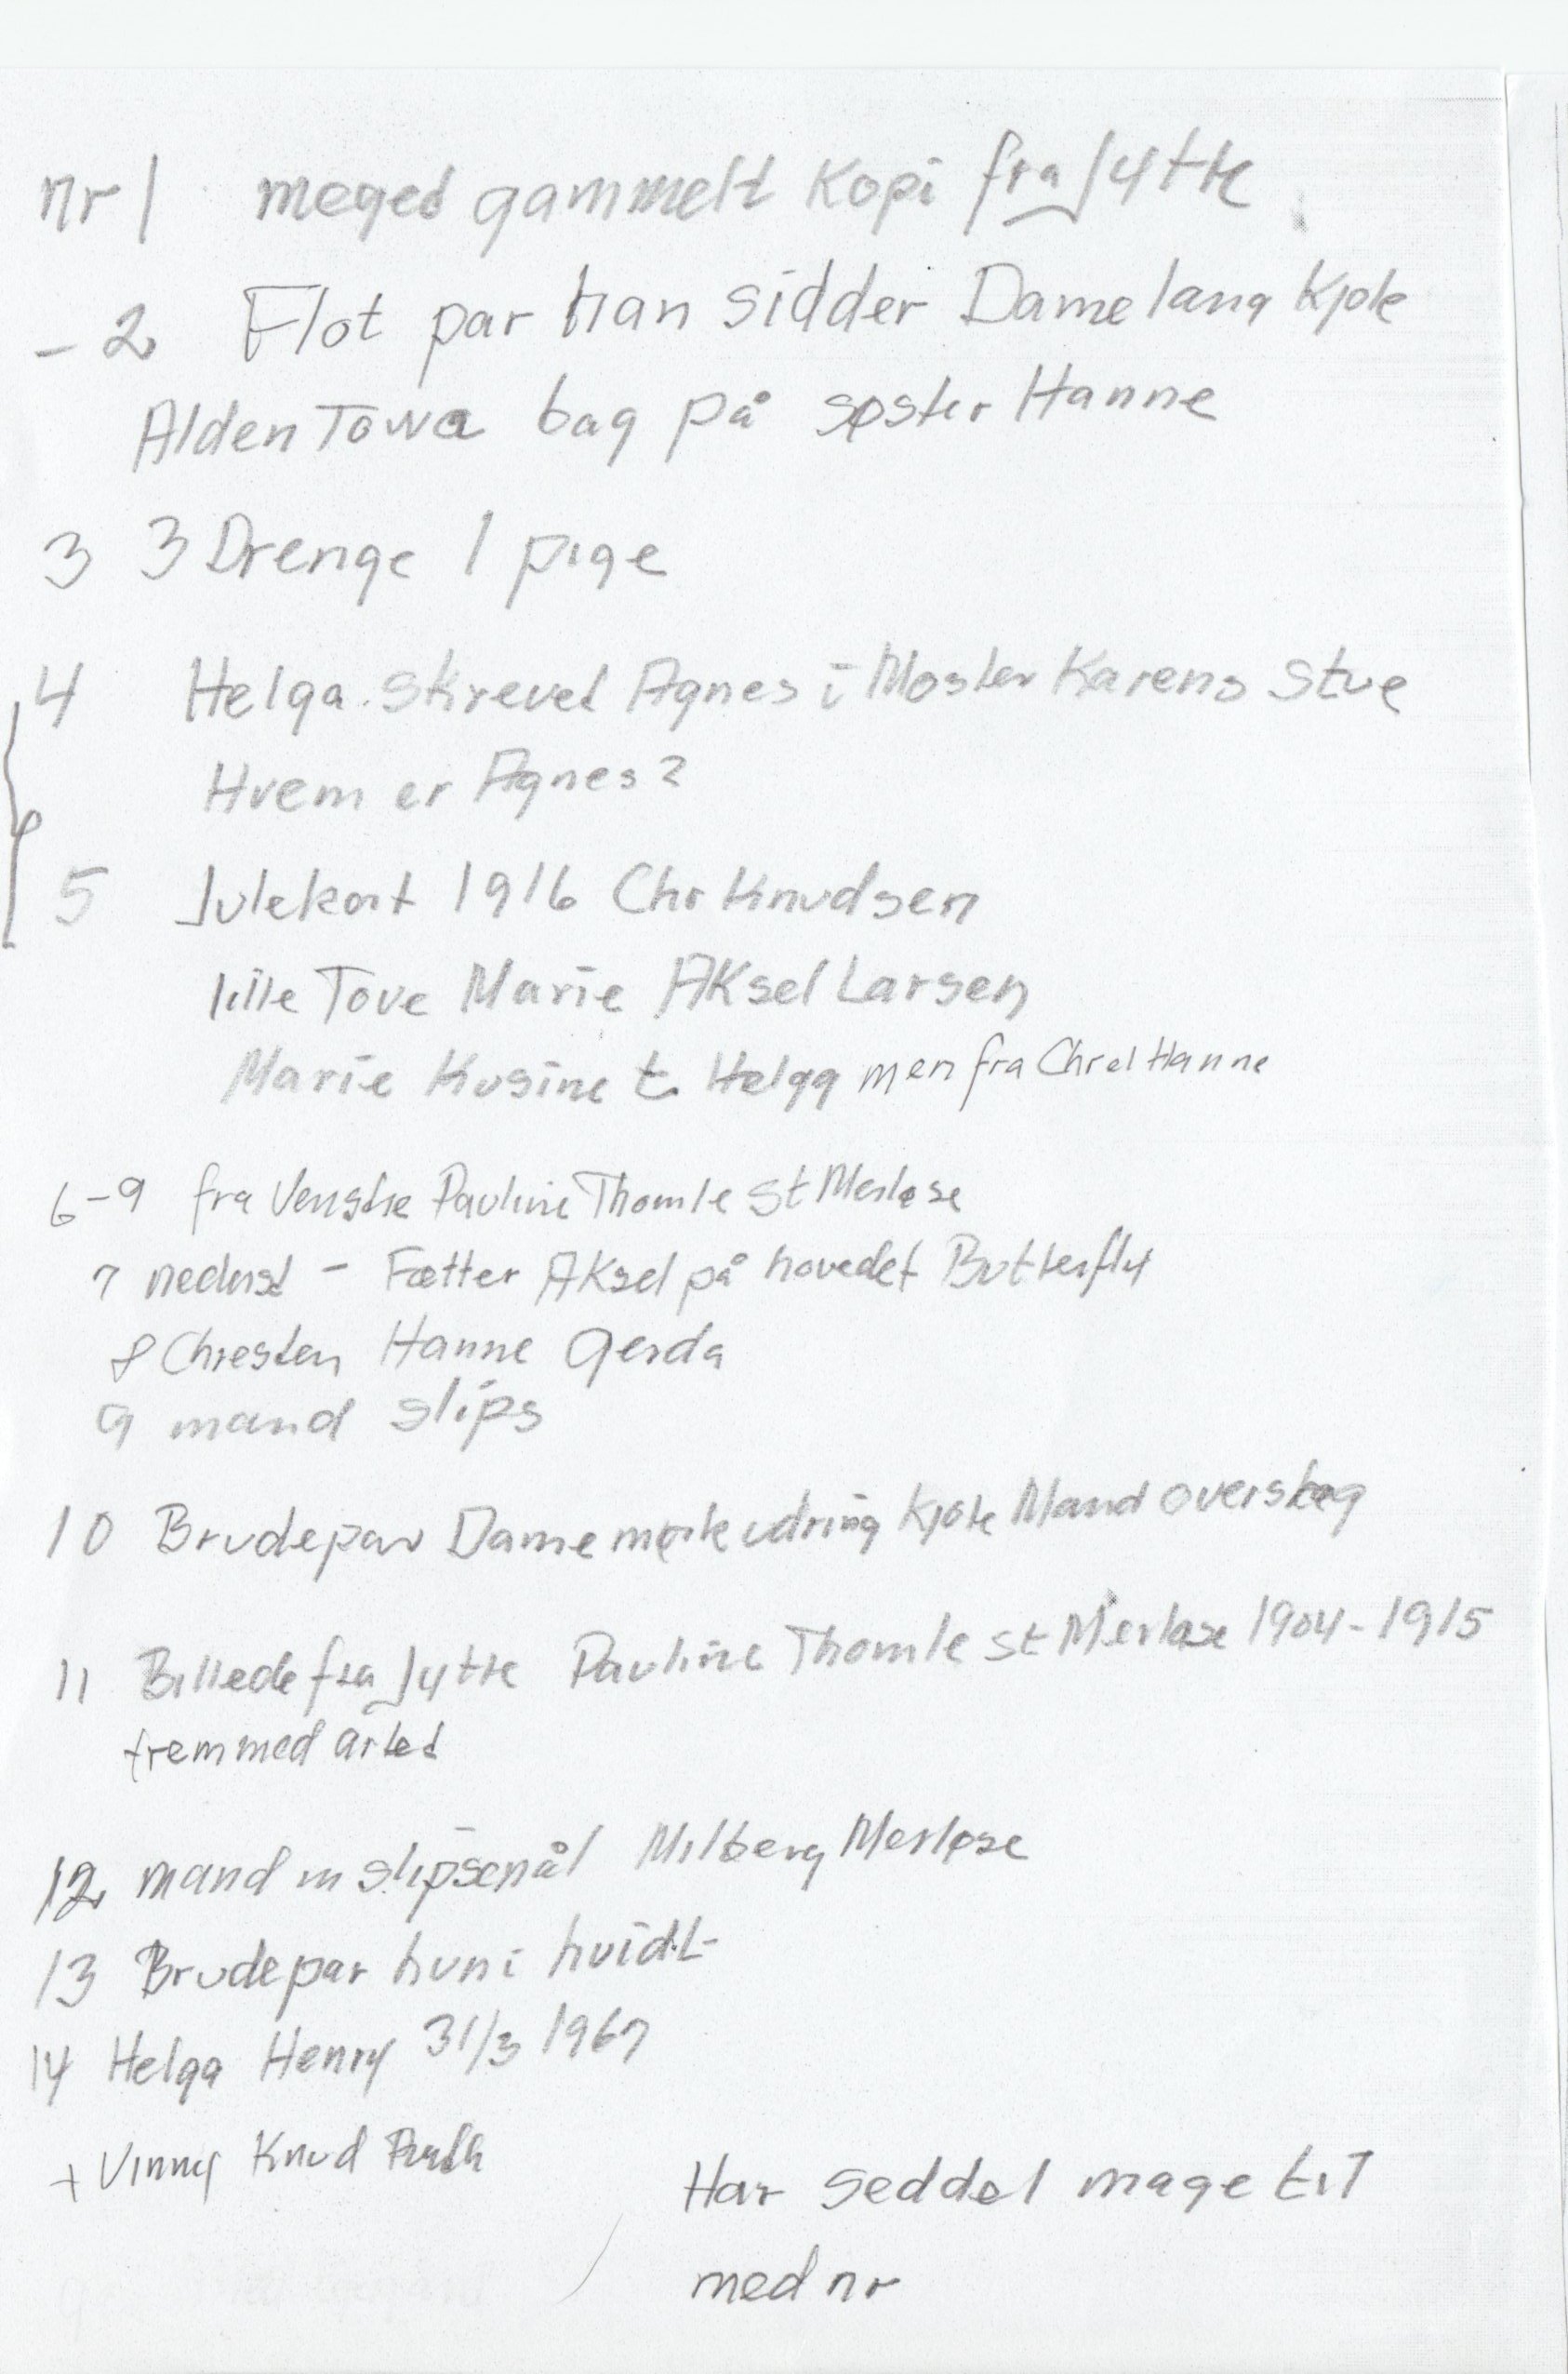 nr 1 meget gammelt Kopi fra Jytte
- 2 Flot par han sidder Dame lang Kjole
Alden Towa bag på søster Hanne
3 3 Drenge 1 pige
4 Helga. Skrevet Agnes i Moster Karens Stue
Hvem er Agnes?
5 Julekort 1916 Chr Knudsen
lille Tove Marie Aksel Larsen
Marie Kusine t Helga men fra Chr el Hanne
6-9 fra Venstre Pauline Thomle St Merløse
7 nederst - Fætter Aksel på hovedet Butterfly
8 Chresten Hanne Gerda
9 mand slips
10 Brudepar Dame mørk udring Kjole Mand overskæg
11 Billede fra Jytte Pauline Thomle St Merløse 1904-1915
fremmed
12 mand m slipsenål Milberg Merløse
13 Brudepar hun i hvidt
14 Helga Henry 31/3 1967
+ Vinny Knud
Har seddel mage til
med nr